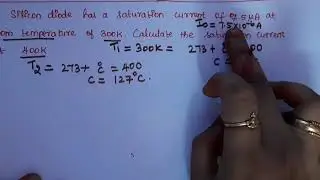 Silicon diode has a saturation current of 7.5 μA at
room temperature of 300K. Calculate the saturation current
400K
I₀ = 7.5×10⁻⁶ A
T₁ = 300K = 273+
T₂ = 273+ ℃ = 400
C = 127°C.